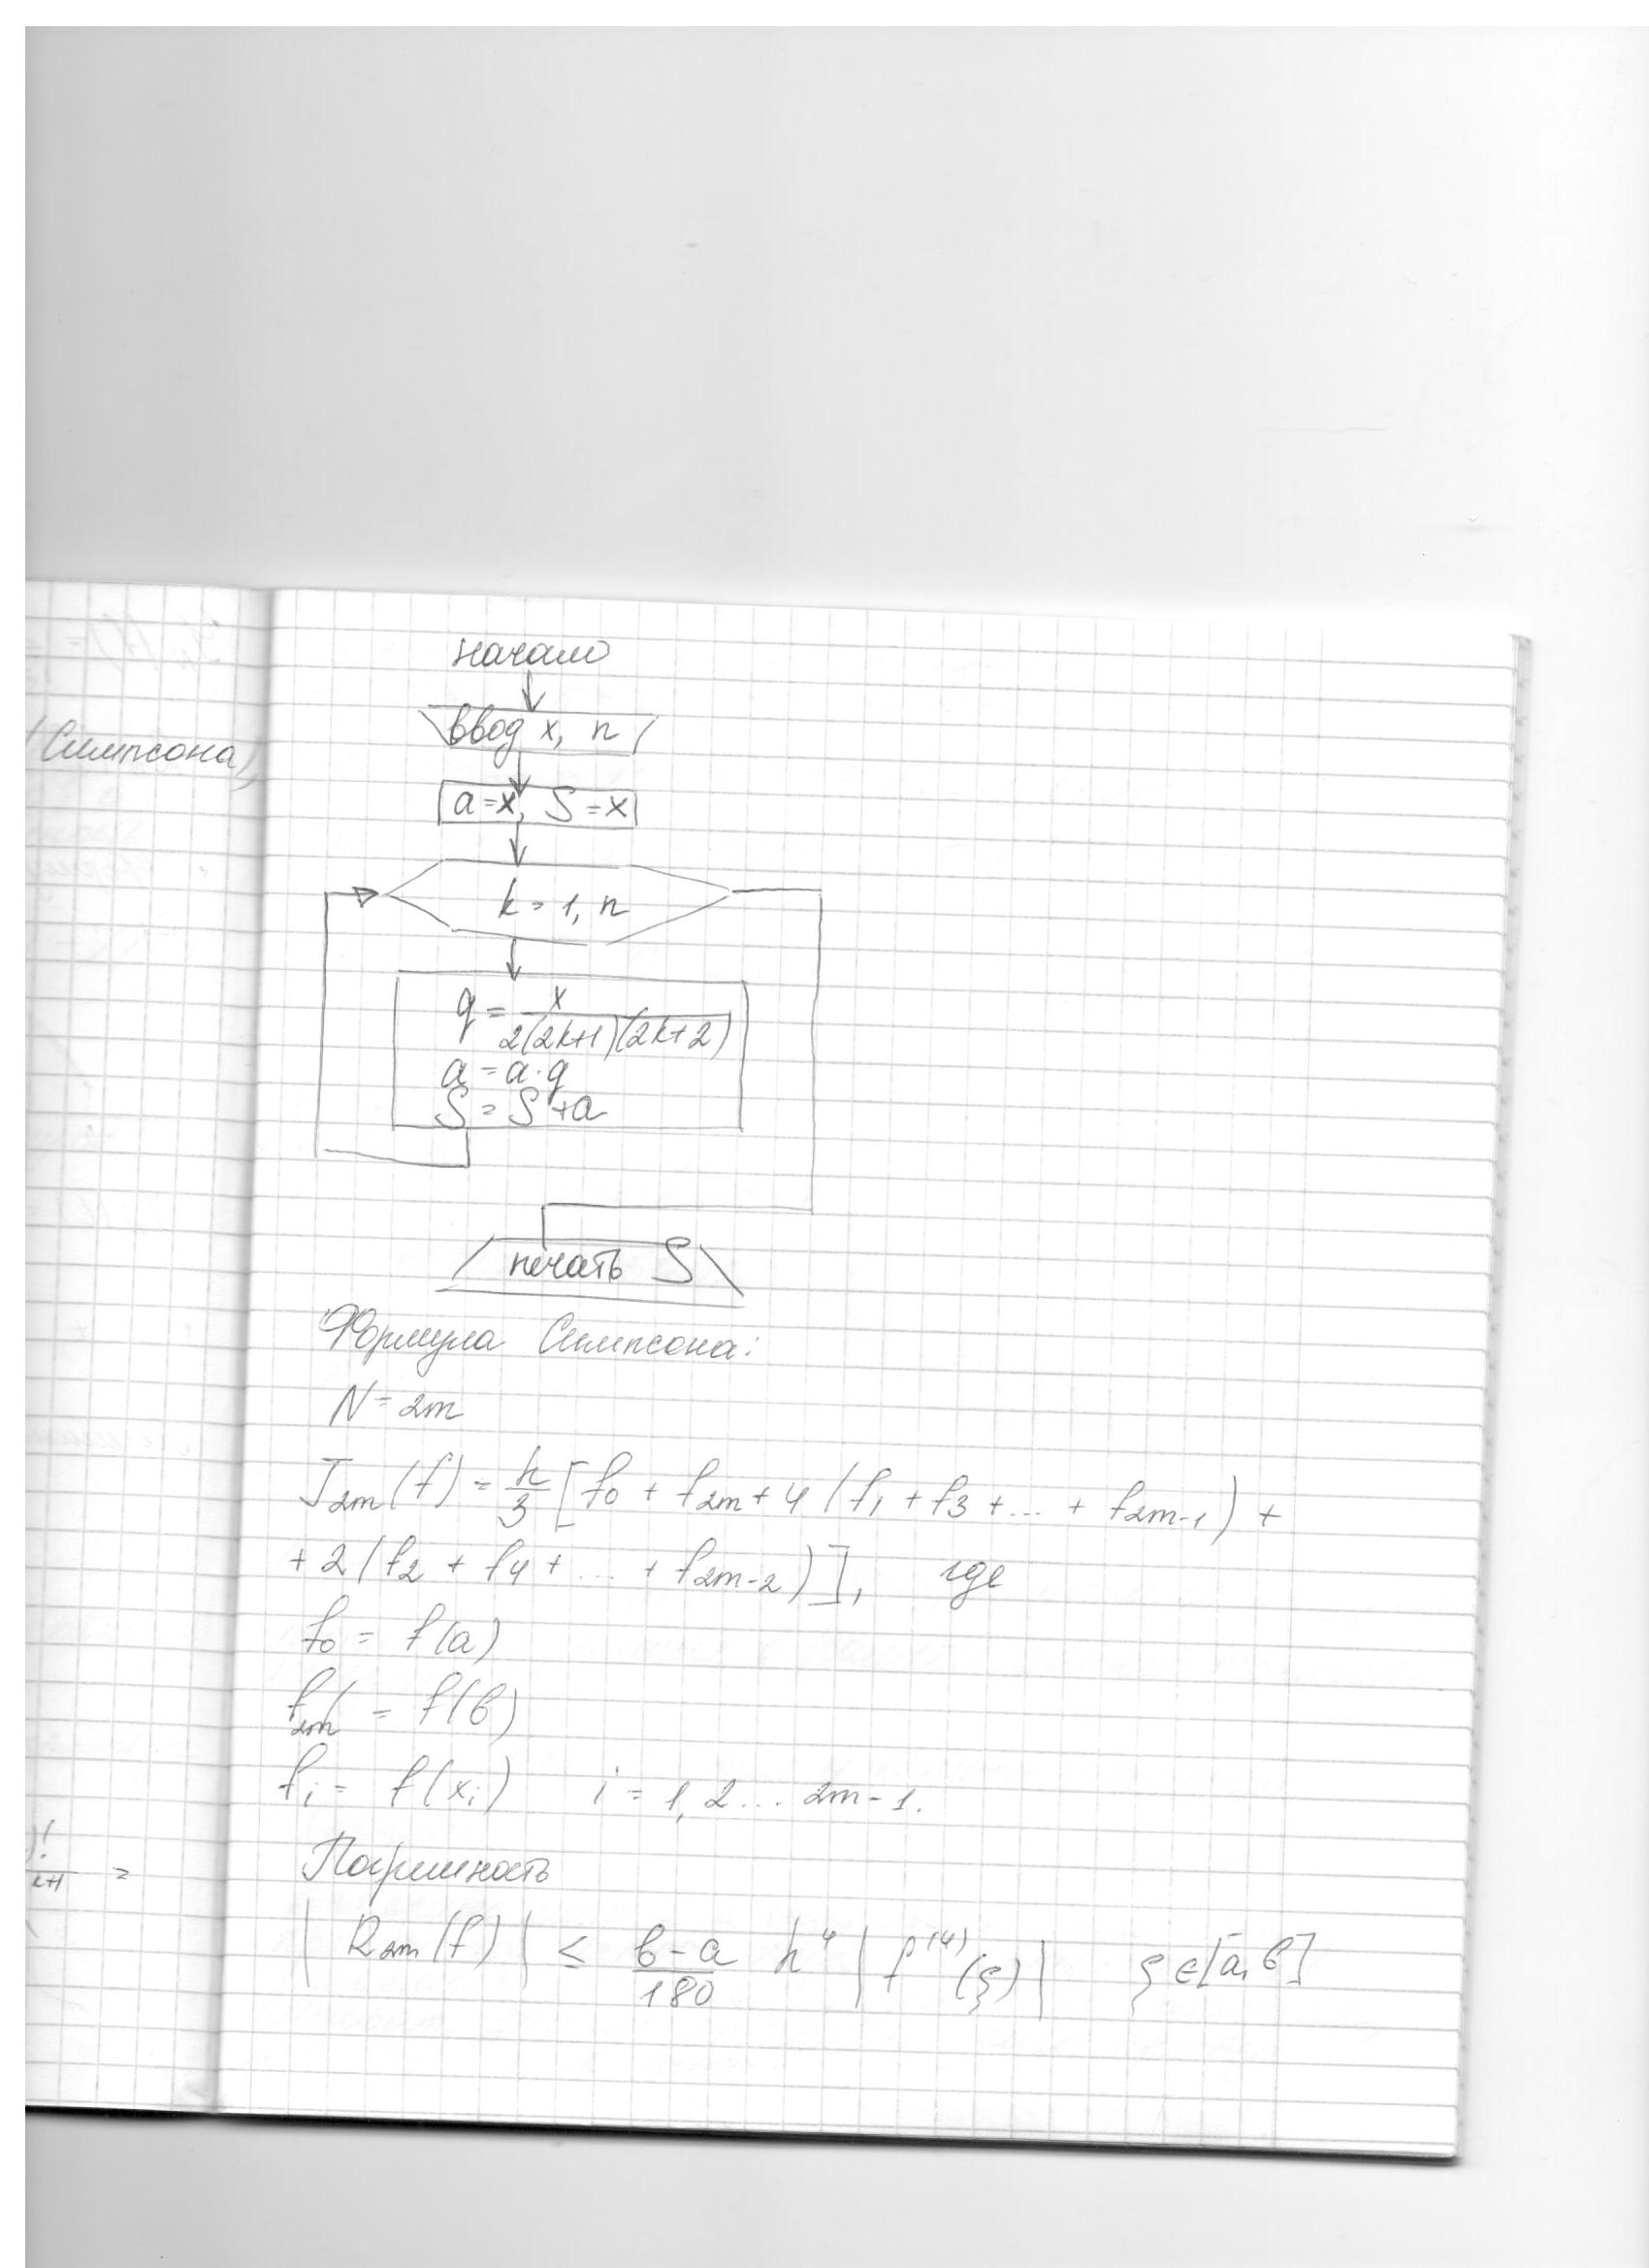 (Симпсона)
начало
ввод x, n
a=x, S=x
k = 1, n
q = x / 2(2k+1)(2k+2)
a = a·q
S = S+a
печать S
Формула Симпсона:
N = 2m
J₂ₘ(f) = h/3 [f₀ + f₂ₘ + 4(f₁ + f₃ + ... + f₂ₘ₋₁) +
+ 2(f₂ + f₄ + ... + f₂ₘ₋₂)], где
f₀ = f(a)
f₂ₘ = f(в)
fᵢ = f(xᵢ) i = 1, 2 ... 2m-1.
Погрешность
|R₂ₘ(f)| ≤ в-a / 180 h⁴ |f⁽⁴⁾(ξ)| ξ ∈ [a, в]